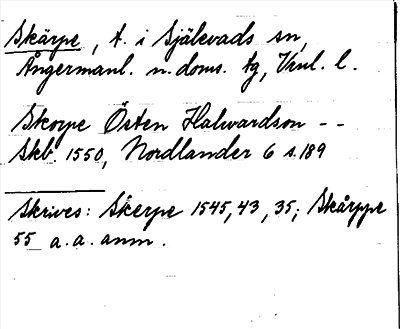 Skärpe, t. i Själevads sn,
Ångermanl. n. doms. tg, Vnl. l.
Skorpe Östen Halwardson - -
Skb 1550, Nordlander 6 s. 189
Skrives: Skerpe 1545, 43, 35; Skårppe
55 a. a. anm.